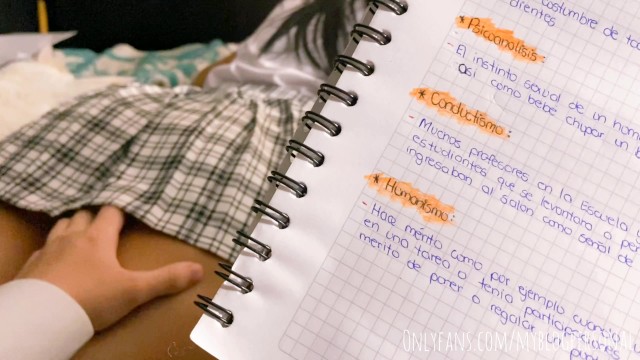 costumbre de
clientes
* Psicoanálisis:
- El instinto sexual de un
así como bebe chupar un
* Conductismo:
- Muchos profesores en la Escuela
estudiantes que se levantara o
ingresaban al salon como señal de
* Humanismo:
- Hace mérito como por ejemplo
en una tarea o tenía
merito de poner o regalar
ONLYFANS.COM/